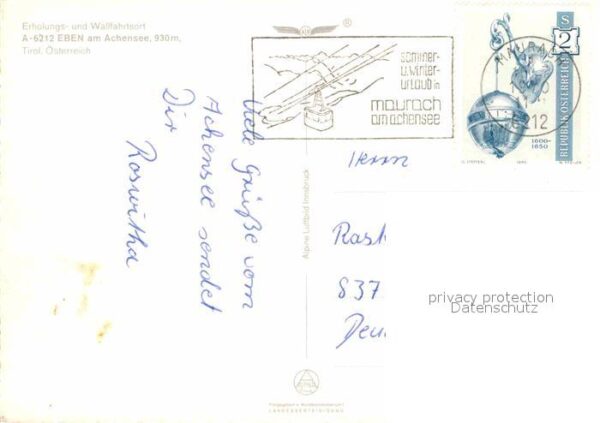 Erholungs- und Wallfahrtsort
A-6212 EBEN am Achensee, 930m,
Tirol, Österreich
Viele Grüße vom
Achensee sendet
Dir
Roswitha
Alpine Luftbild Innsbruck
®
sommer-
u. winter-
urlaub in
maurach
am achensee
MAURACH
6212
S
2
REPUBLIK ÖSTERREICH
1600-
1650
Herrn
Rask
837
Deu
privacy protection
Datenschutz
LANDESVERTEIDIGUNG